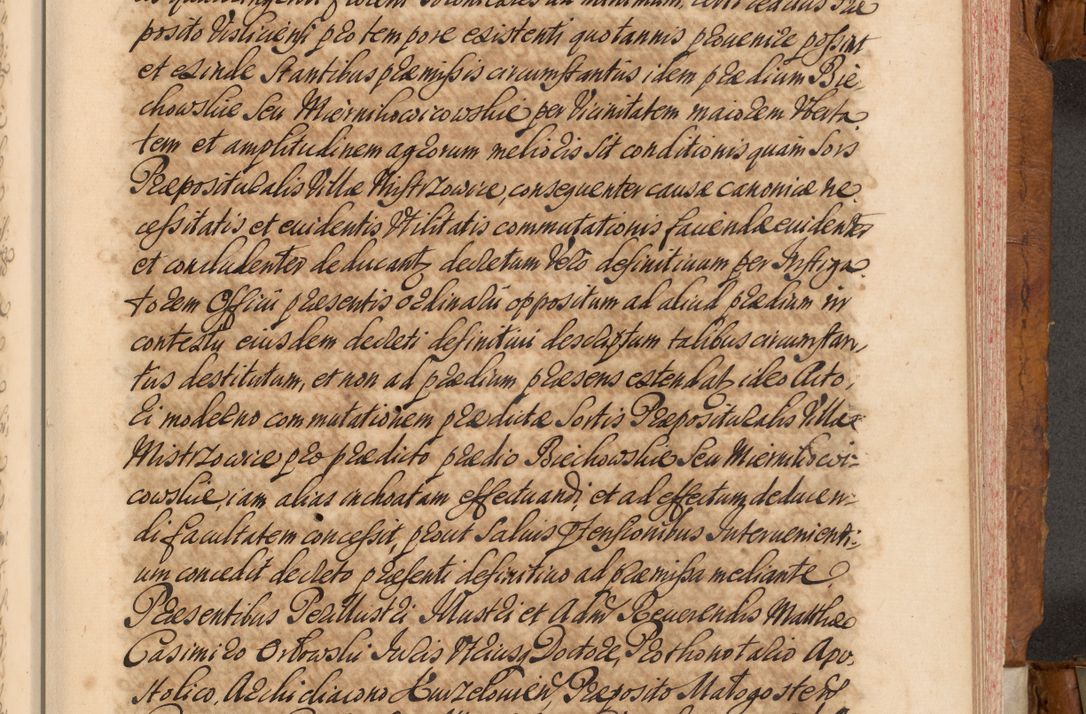 posito Visliciensi pro tempore existenti quotannis provenire possint
et exinde Stantibus præmissis circumstantiis idem prædium Bie,
chowskie Seu Miernihowicowskie per Vicinitatem maiorem Vberta
tem et amplitudinem agrorum melioris Sit conditionis quam Sors
Præpositularis Villæ Mistrzowice, consequenter causæ canonicæ ne
cessitatis et euidentis Vtilitatis commutationis faciendæ euidenter
et concludenter deducant, decretum Vero definitiuum per Instiga
torem Officii præsentis ordinarii oppositum ad aliud prædium in
contextu eiusdem decreti definitiui descriptum talibus circumstan,
tiis destitutum, et non ad prædium præsens extendat ideo Acto,
ri moderno commutationem prædictæ Sortis Præpositularis Villæ
Mistrzowice pro prædicto prædio Biechowskie Seu Miernihowi:
cowskie, iam alias inchoatam effectuandi, et ad effectum deducen:
di facultatem concessit, prout Saluis Pensionibus Intervenienti:
um concedit decreto præsenti definitiuo ad præmissa mediante
Præsentibus Perillustri Illustri et Adm Reuerendis Matthæo
Casimiro Orlowski Iuris Vtriusq Doctore, Prothonotario Apo,
stolico, Archidiacono Kurzelouien, Præposito Malogosten